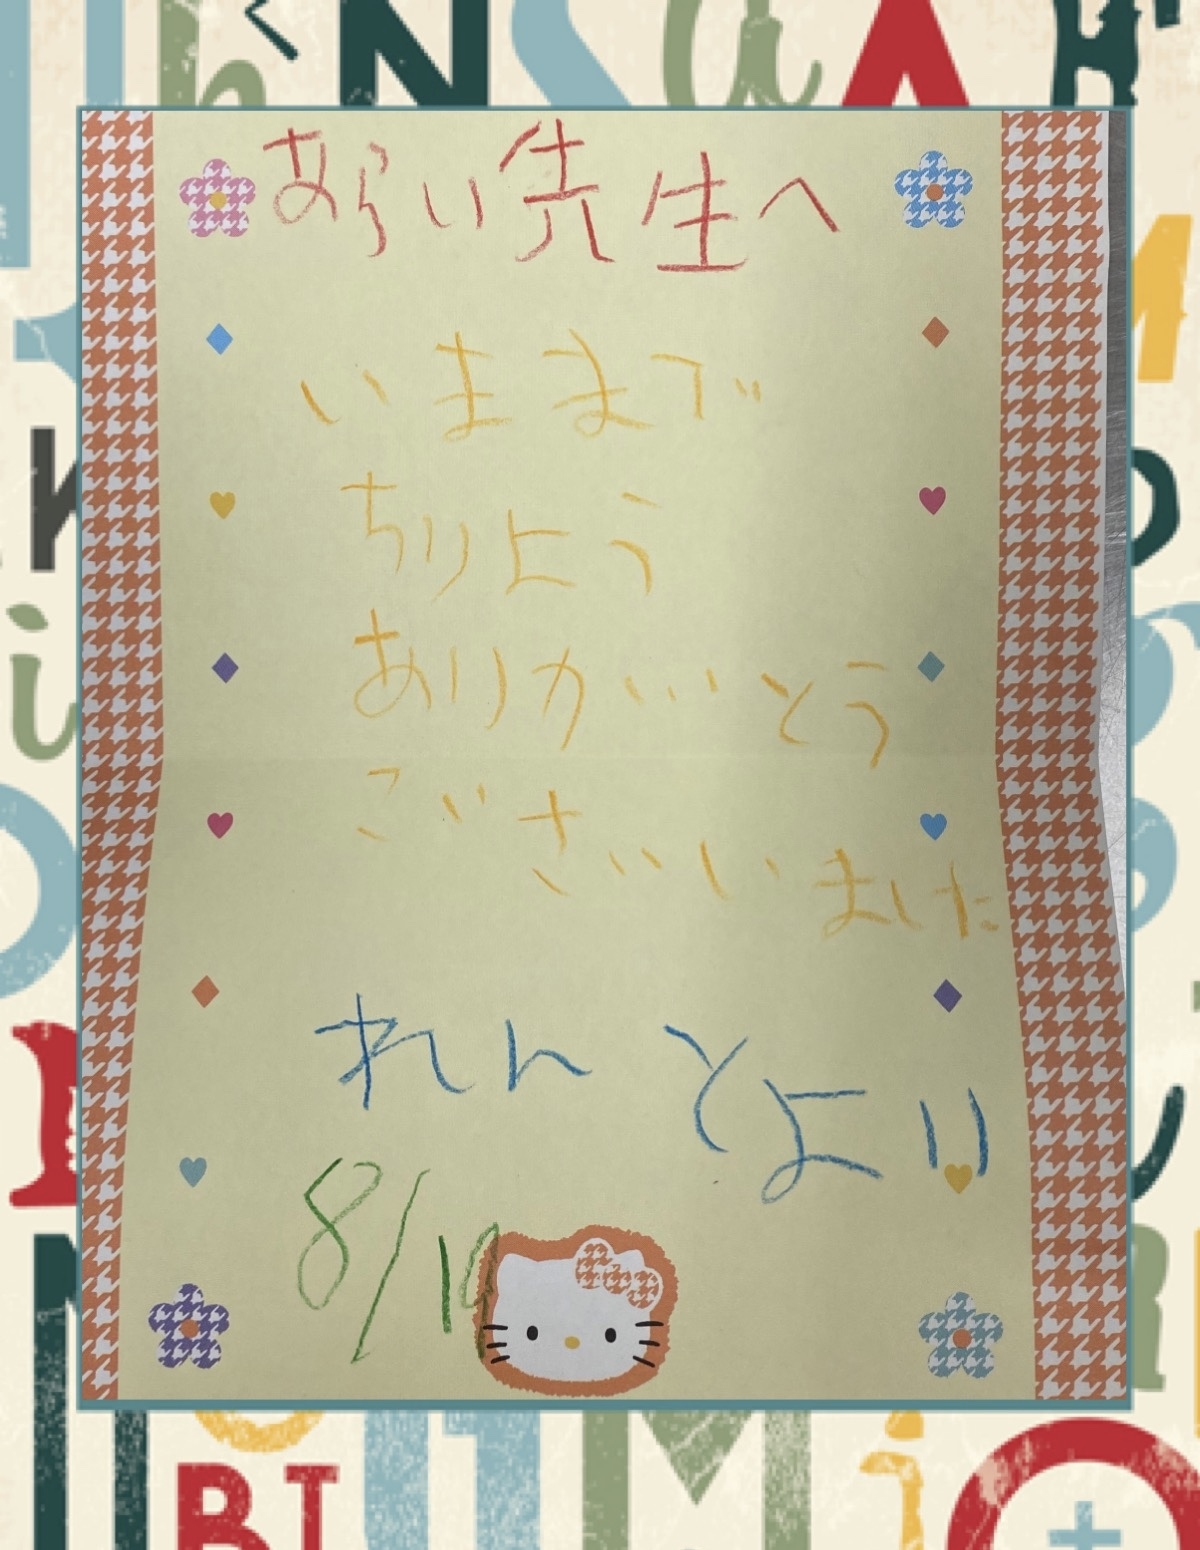 あらい先生へ
いままで
ちりよう
ありがとう
ございました
れんとより
8/19